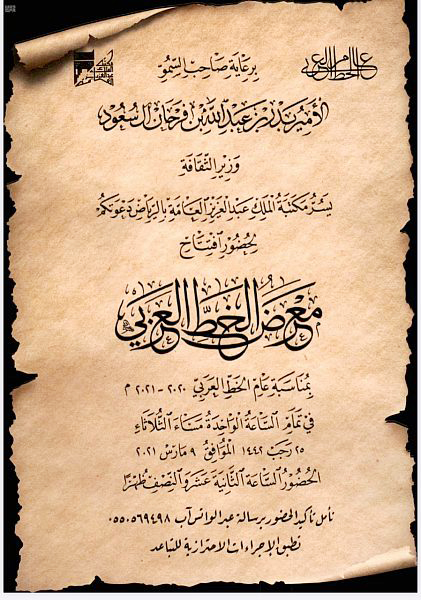 عام الخط العربي
برعاية صاحب السمو
الأمير بدر بن عبدالله بن فرحان آل سعود
وزير الثقافة
يسر مكتبة الملك عبدالعزيز العامة بالرياض دعوتكم
لحضور افتتاح
معرض الخط العربي
بمناسبة عام الخط العربي ٢٠٢٠ - ٢٠٢١ م
في تمام الساعة الواحدة مساء الثلاثاء
٢٥ رجب ١٤٤٢ الموافق ٩ مارس ٢٠٢١
الحضور الساعة الثانية عشر والنصف ظهرًا
نأمل تأكيد الحضور برسالة عبر الواتس آب ٠٥٥٠٥٦٩٤٩٨
تطبق الإجراءات الاحترازية للتباعد